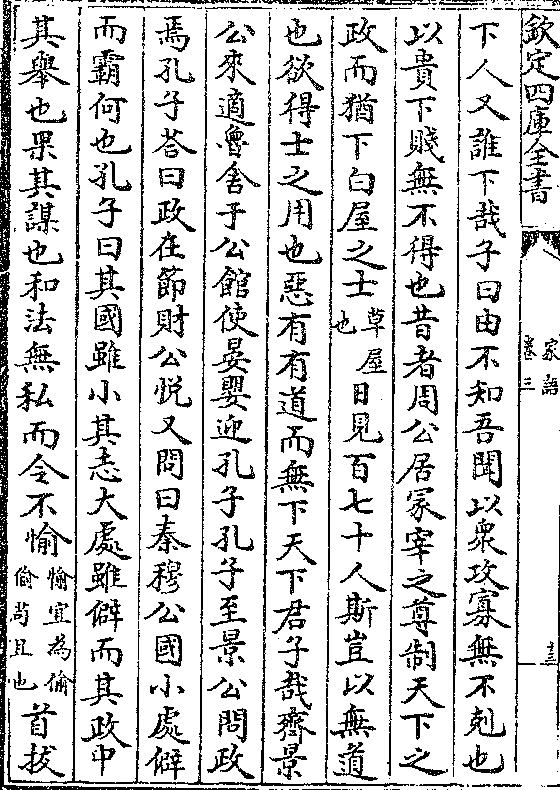 欽定四庫全書
家語
卷三
十三
下人又誰下哉子曰由不知吾聞以衆攻寡無不剋也
以貴下賤無不得也昔者周公居冢宰之尊制天下之
政而猶下白屋之士草屋也日見百七十人斯豈以無道
也欲得士之用也惡有有道而無下天下君子哉齊景
公來適魯舍于公館使晏嬰迎孔子孔子至景公問政
焉孔子荅曰政在節財公悅又問曰秦穆公國小處僻
而霸何也孔子曰其國雖小其志大處雖僻而其政中
其舉也果其謀也和法無私而令不愉愉宜為偷偷苟且也首拔